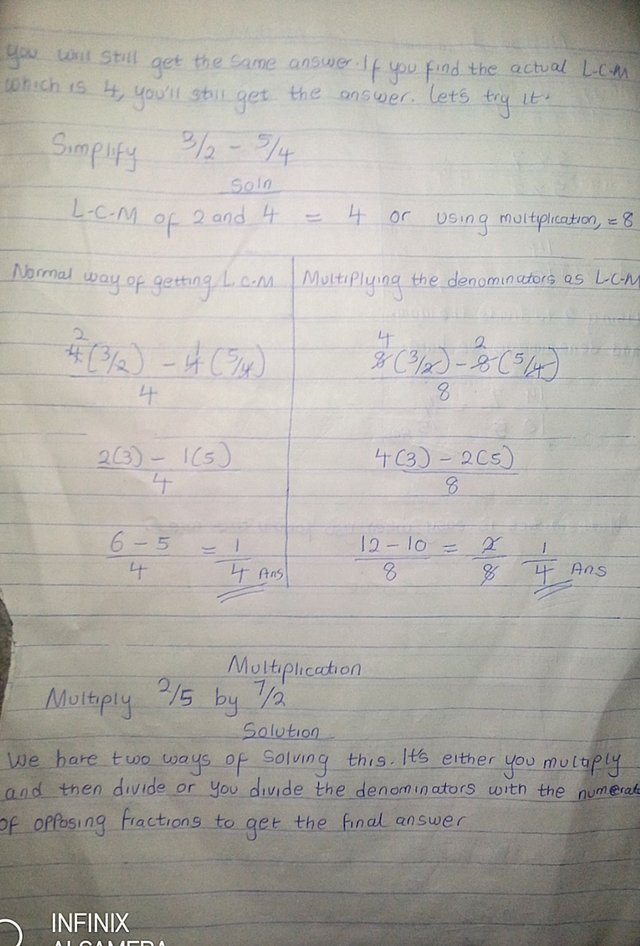 you will still get the same answer. If you find the actual L.C.M
which is 4, you'll still get the answer. Let's try it.
Simplify 3/2 - 5/4
Soln
L.C.M of 2 and 4 = 4 or using multiplication, = 8
Normal way of getting L.C.M
2 1
4(3/2) - 4(5/4)
4
2(3) - 1(5)
4
6 - 5 = 1
4 4 Ans
Multiplying the denominators as L.C.M
4 2
8(3/2) - 8(5/4)
8
4(3) - 2(5)
8
12 - 10 = 2 1
8 8 4 Ans
Multiplication
Multiply 2/5 by 7/2
Solution
We have two ways of solving this. It's either you multiply
and then divide or you divide the denominators with the numerat
of opposing fractions to get the final answer
INFINIX
AI CAMERA